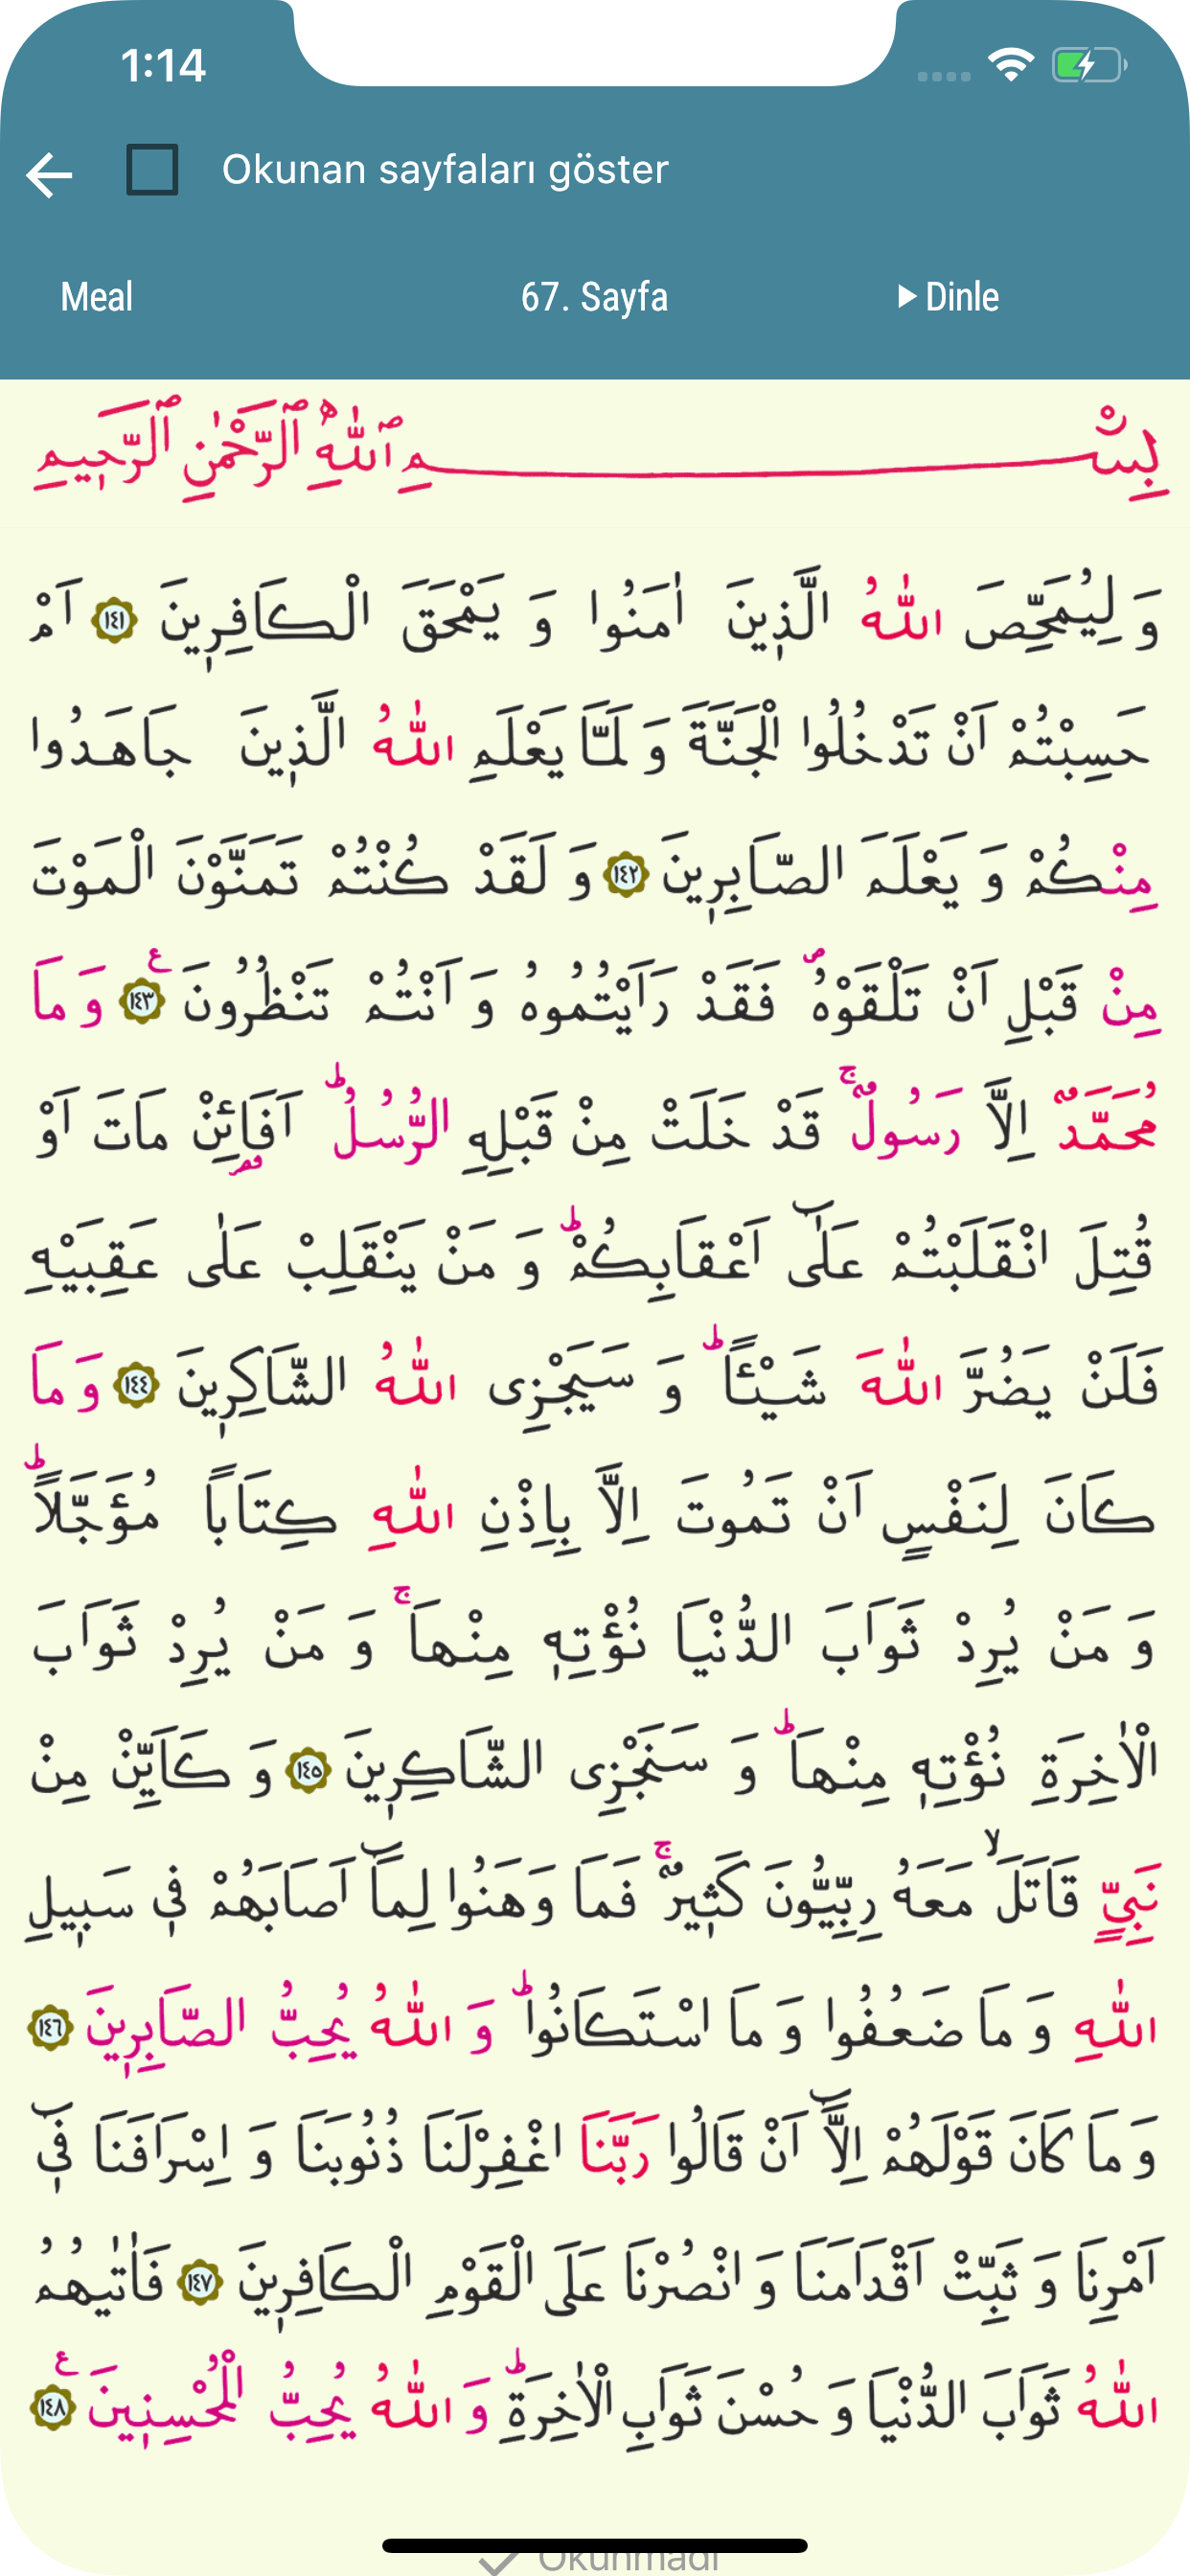 1:14
Okunan sayfaları göster
Meal 67. Sayfa Dinle
بِسْمِ ٱللّٰهِ ٱلرَّحْمٰنِ ٱلرَّحِيمِ
وَ لِيُمَحِّصَ اللّٰهُ الَّذِينَ اٰمَنُوا وَ يَمْحَقَ الْكَافِرِينَ ﴿١٤١﴾ اَمْ
حَسِبْتُمْ اَنْ تَدْخُلُوا الْجَنَّةَ وَ لَمَّا يَعْلَمِ اللّٰهُ الَّذِينَ جَاهَدُوا
مِنْكُمْ وَ يَعْلَمَ الصَّابِرِينَ ﴿١٤٢﴾ وَ لَقَدْ كُنْتُمْ تَمَنَّوْنَ الْمَوْتَ
مِنْ قَبْلِ اَنْ تَلْقَوْهُ ۖ فَقَدْ رَاَيْتُمُوهُ وَ اَنْتُمْ تَنْظُرُونَ ﴿١٤٣﴾ ع وَ مَا
مُحَمَّدٌ اِلَّا رَسُولٌ ۚ قَدْ خَلَتْ مِنْ قَبْلِهِ الرُّسُلُ ؕ اَفَا۬ئِنْ مَاتَ اَوْ
قُتِلَ انْقَلَبْتُمْ عَلٰٓى اَعْقَابِكُمْ ؕ وَ مَنْ يَنْقَلِبْ عَلٰى عَقِبَيْهِ
فَلَنْ يَضُرَّ اللّٰهَ شَيْـًٔا ؕ وَ سَيَجْزِى اللّٰهُ الشَّاكِرِينَ ﴿١٤٤﴾ وَ مَا
كَانَ لِنَفْسٍ اَنْ تَمُوتَ اِلَّا بِاِذْنِ اللّٰهِ كِتَابًا مُؤَجَّلًا ؕ
وَ مَنْ يُرِدْ ثَوَابَ الدُّنْيَا نُؤْتِهِ مِنْهَا ۚ وَ مَنْ يُرِدْ ثَوَابَ
الْاٰخِرَةِ نُؤْتِهِ مِنْهَا ؕ وَ سَنَجْزِى الشَّاكِرِينَ ﴿١٤٥﴾ وَ كَاَيِّنْ مِنْ
نَبِيٍّ قَاتَلَ ۙ مَعَهُ رِبِّيُّونَ كَثِيرٌ ۚ فَمَا وَهَنُوا لِمَٓا اَصَابَهُمْ فِي سَبِيلِ
اللّٰهِ وَ مَا ضَعُفُوا وَ مَا اسْتَكَانُوا ؕ وَ اللّٰهُ يُحِبُّ الصَّابِرِينَ ﴿١٤٦﴾
وَ مَا كَانَ قَوْلَهُمْ اِلَّٓا اَنْ قَالُوا رَبَّنَا اغْفِرْلَنَا ذُنُوبَنَا وَ اِسْرَافَنَا فِٓي
اَمْرِنَا وَ ثَبِّتْ اَقْدَامَنَا وَ انْصُرْنَا عَلَى الْقَوْمِ الْكَافِرِينَ ﴿١٤٧﴾ فَاٰتٰيهُمُ
اللّٰهُ ثَوَابَ الدُّنْيَا وَ حُسْنَ ثَوَابِ الْاٰخِرَةِ ؕ وَ اللّٰهُ يُحِبُّ الْمُحْسِنِينَ ﴿١٤٨﴾ ع
Okunmadı